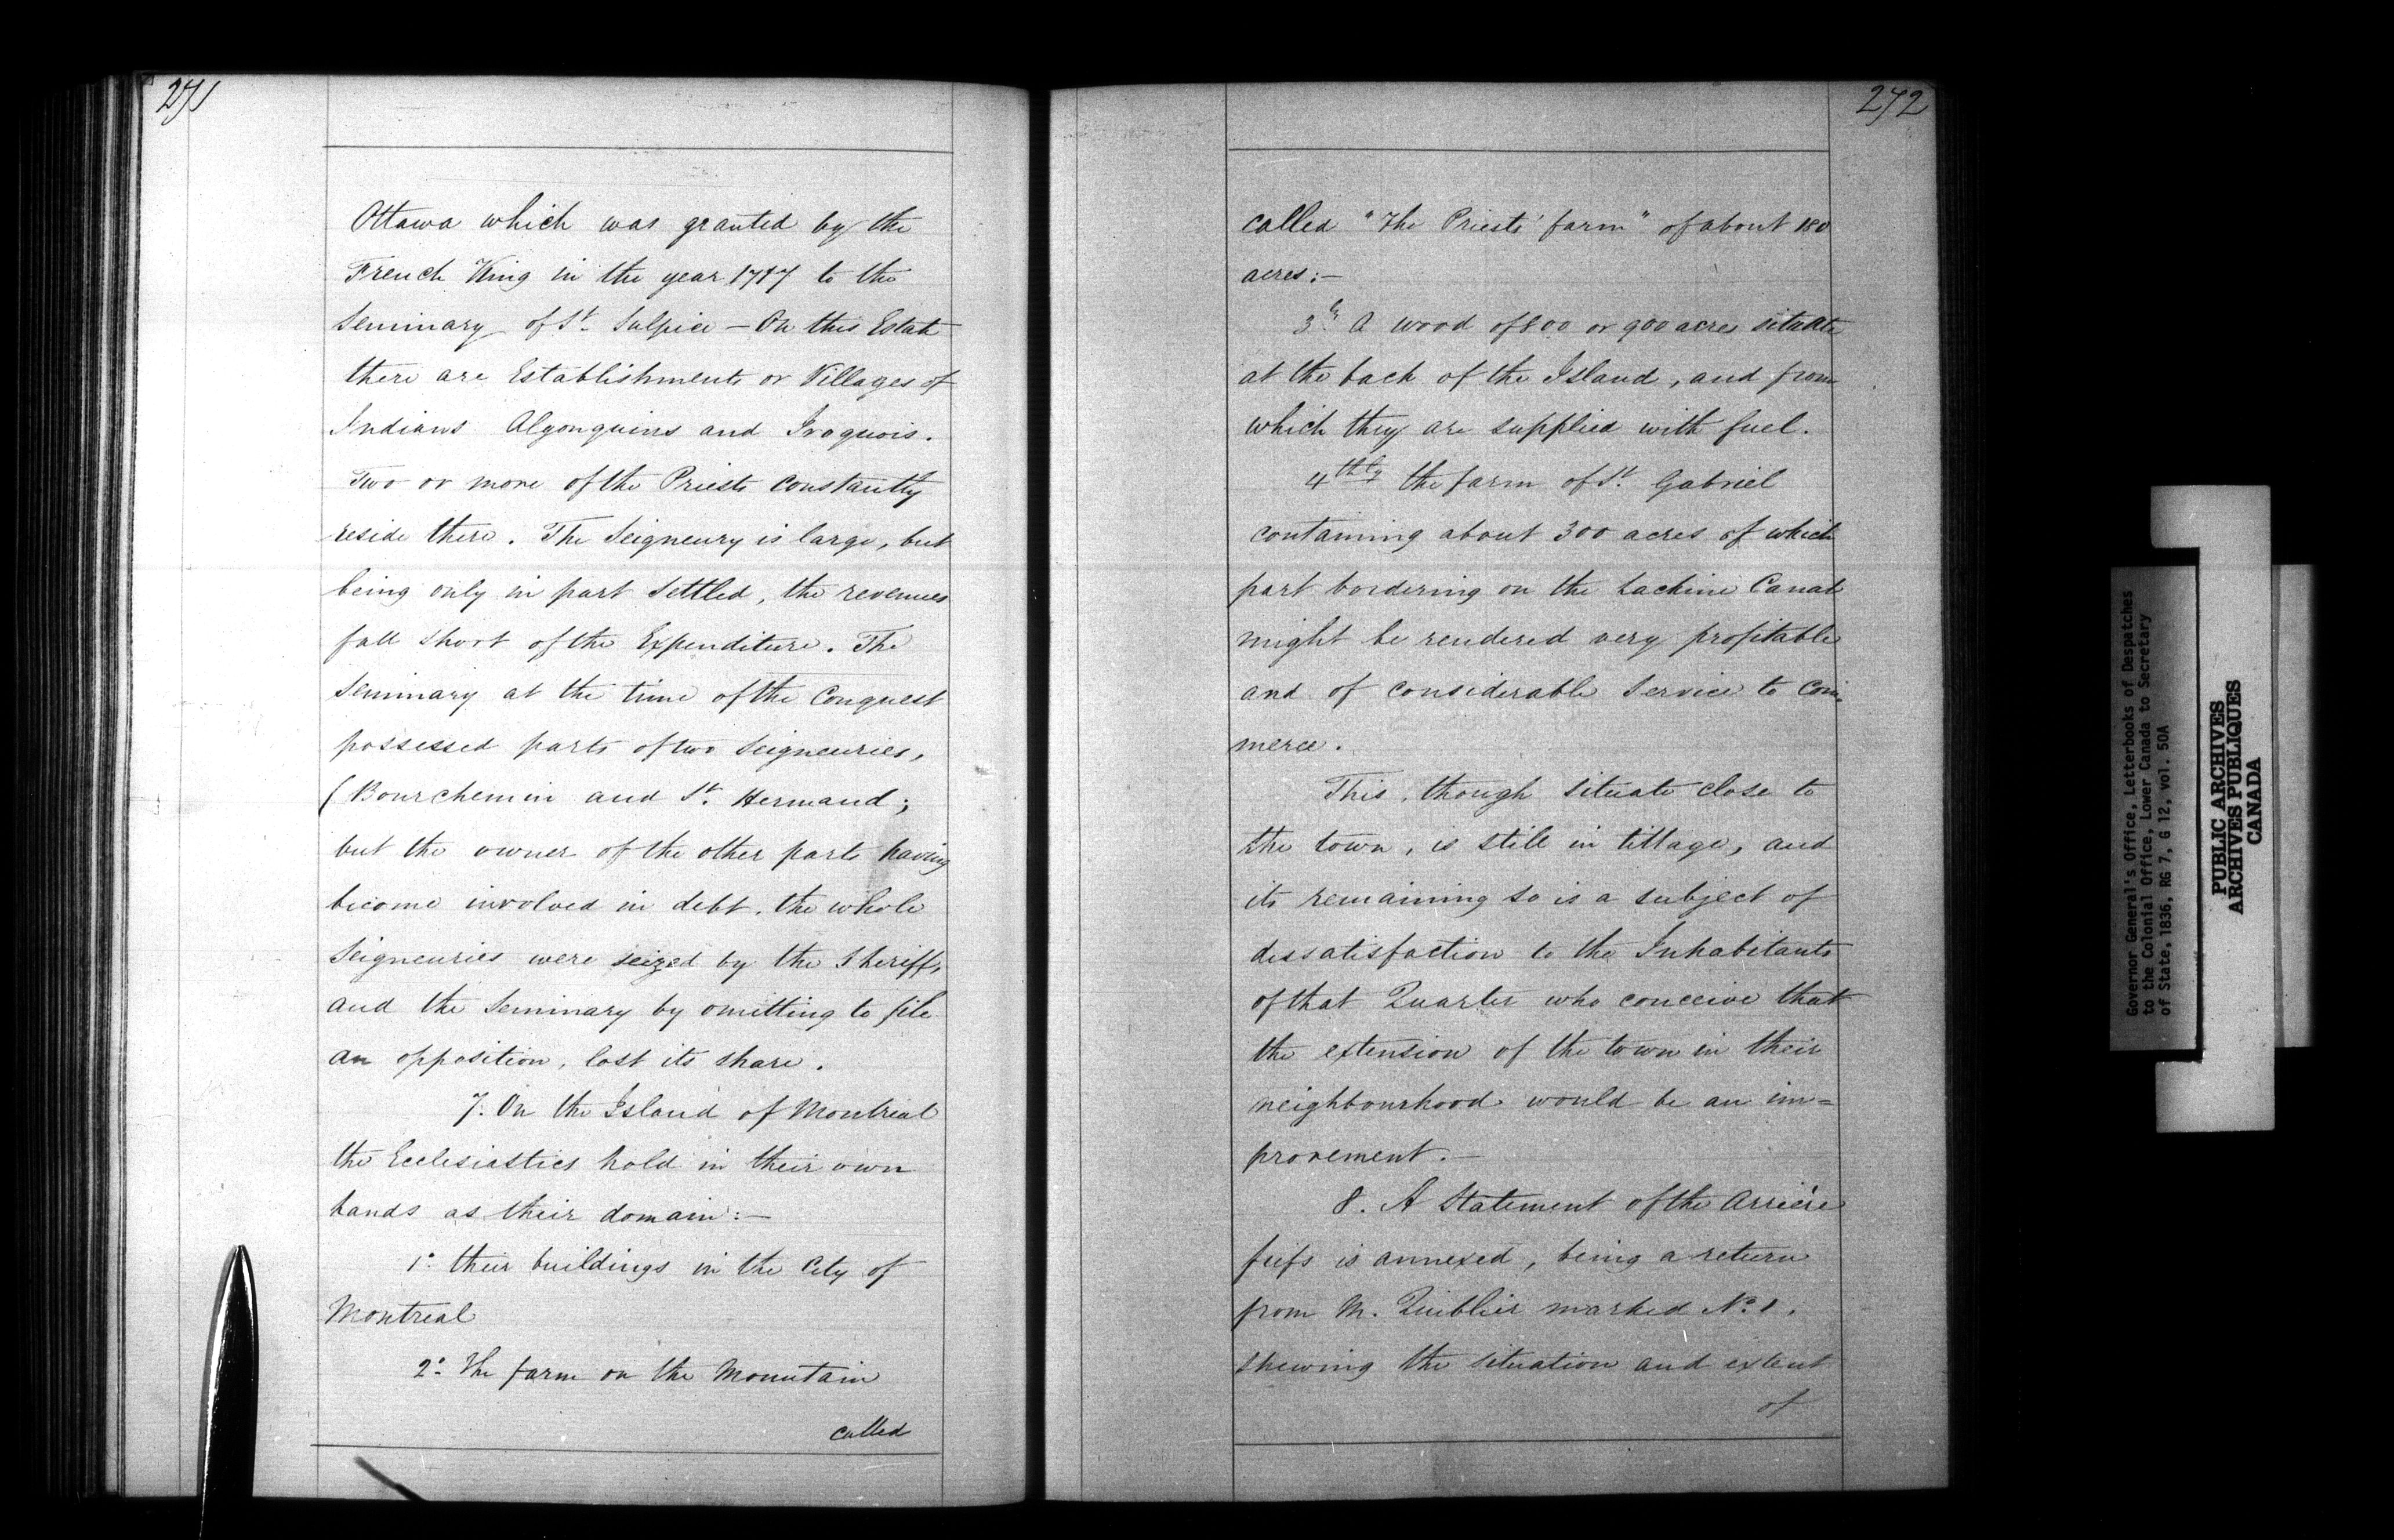 271
Ottawa which was granted by the
French King in the year 1717 to the
Seminary of St. Sulpice – On this Estate
there are Establishments or Villages of
Indians Algonquins and Iroquois.
Two or more of the Priests constantly
reside there. The Seigneury is large, but
being only in part settled, the revenues
fall short of the Expenditure. The
Seminary at the time of the Conquest
possessed parts of two Seigneuries,
(Bourchemin and St. Hermand;
but the owner of the other parts having
become involved in debt, the whole
Seigneuries were seized by the Sheriff,
and the Seminary by omitting to file
an opposition, lost its share.
7. On the Island of Montreal
the Ecclesiastics hold in their own
hands as their domain:–
1º. their buildings in the City of
Montreal
2º. The farm on the Mountain
called
272
called "The Priests' farm" of about 180
acres:–
3ly. A wood of 800 or 900 acres situate
at the back of the Island, and from
which they are supplied with fuel.
4thly the farm of St. Gabriel
containing about 300 acres of which
part bordering on the Lachine Canal
might be rendered very profitable
and of considerable Service to Com-
merce.
This, though situate close to
the town, is still in tillage, and
its remaining so is a subject of
dissatisfaction to the Inhabitants
of that Quarter who conceive that
the extension of the town in their
neighbourhood would be an im=
provement.–
8. A Statement of the Arriére
fiefs is annexed, being a return
from M. Quiblier marked No. 1.
shewing the situation and extent
of
Governor General's Office, Letterbooks of Despatches
to the Colonial Office, Lower Canada to Secretary
of State, 1836, RG 7, G 12, vol. 50A
PUBLIC ARCHIVES
ARCHIVES PUBLIQUES
CANADA